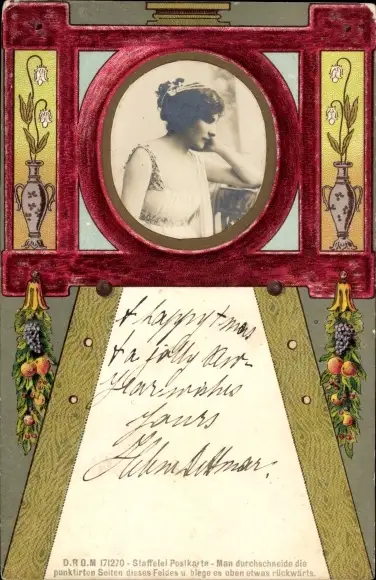 A happy Xmas
& a jolly New
Year wishes
Yours
Helen Dittmar.
D.R.G.M 171270 - Staffelei Postkarte - Man durchschneide die
punktirten Seiten dieses Feldes u. biege es oben etwas rückwärts.